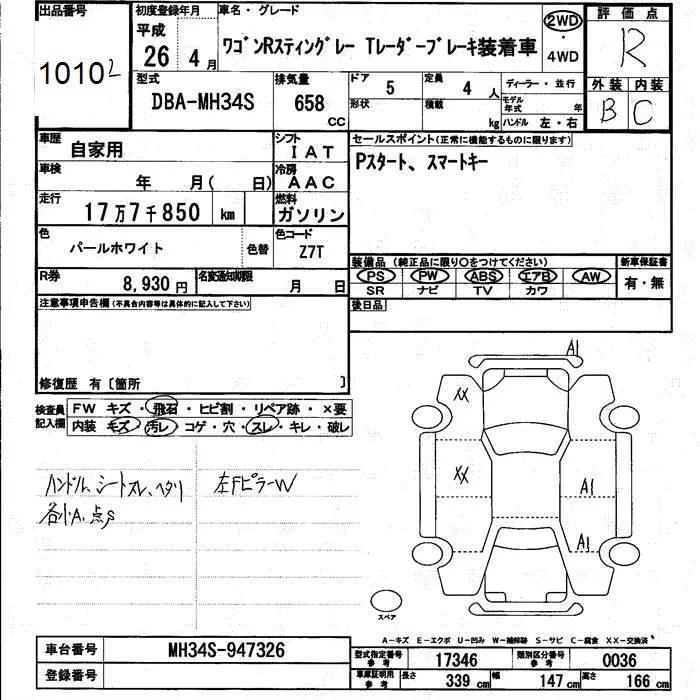 出品番号 初度登録年月 車名・グレード 評価点
10102 平成 26年 4月 ワゴンRスティングレー Tレーダーブレーキ装着車 2WD・4WD R
型式 排気量 ドア 5 定員 4人 ディーラー・並行 外装 内装
DBA-MH34S 658cc 形状 積載 kg モデル年式 年 ハンドル 左・右 B C
車歴 自家用 シフト IAT セールスポイント(正常に機能するものに限ります)
車検 年 月( 日) 冷房 AAC Pスタート、スマートキー
走行 17万7千850 km 燃料 ガソリン
色 パールホワイト 色替 色コード Z7T
装備品(純正品に限り○をつけてください) 新車保証書
R券 8,930円 名変通知期限 月 日 PS PW ABS エアB AW 有・無
SR ナビ TV カワ
注意事項申告欄(不具合内容等は具体的に記入して下さい) 後日品
修復歴 有〔箇所 〕
検査員記入欄 FW キズ・飛石・ヒビ割・リペア跡・×要
内装 キズ・汚レ・コゲ・穴・スレ・キレ・破レ
ハンドル、シートスレ、ヘタリ 左FピラーW
各小A、点S
A1
XX
XX
A1
A1
スペア
A-キズ E-エクボ U-凹み W-補修跡 S-サビ C-腐食 XX-交換済
車台番号 MH34S-947326 型式指定番号 参考 17346 類別区分番号 参考 0036
登録番号 車庫証明用 参考 長さ 339cm 幅 147cm 高さ 166cm